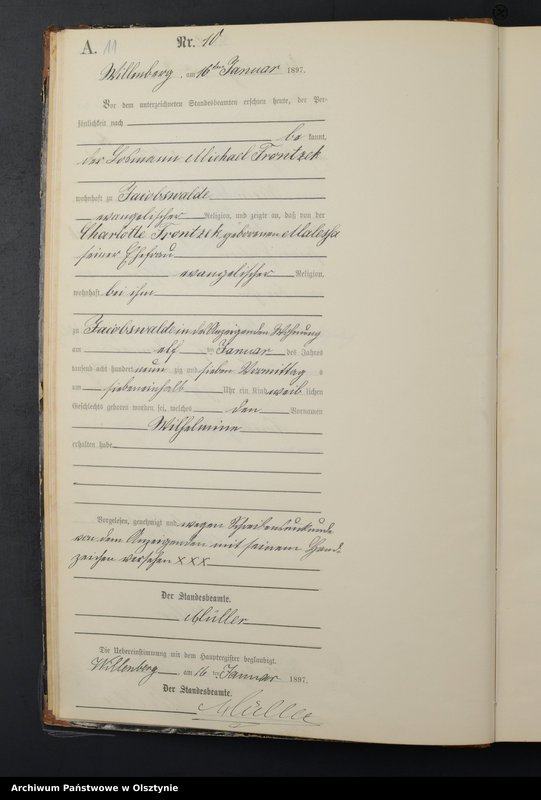 A. 11
Nr. 10
Willenberg, am 16ten Januar 1897.
Vor dem unterzeichneten Standesbeamten erschien heute, der Per-
sönlichkeit nach
be kannt,
der Losmann Michael Frontzek
wohnhaft zu Jacobswalde
evangelischer Religion, und zeigte an, daß von der
Charlotte Frontzek geborenen
seiner Ehefrau
evangelischer Religion,
wohnhaft bei ihm
zu Jacobswalde in des Anzeigenden Wohnung
am elf ten Januar des Jahres
tausend acht hundert neun zig und sieben Vormittag s
um siebeneinhalb Uhr ein Kind weib lichen
Geschlechts geboren worden sei, welches den Vornamen
Wilhelmine
erhalten habe
Vorgelesen, genehmigt und wegen Schreibensunkunde
von dem Anzeigenden mit seinem Hand-
zeichen versehen XXX
Der Standesbeamte.
Müller
Die Uebereinstimmung mit dem Hauptregister beglaubigt.
Willenberg, am 16 ten Januar 1897.
Der Standesbeamte.
Müller
Archiwum Państwowe w Olsztynie